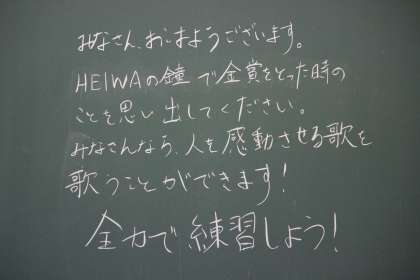 みなさん、おはようございます。
HEIWAの鐘で金賞をとった時の
ことを思い出してください。
みなさんなら、人を感動させる歌を
歌うことができます!
全力で練習しよう!